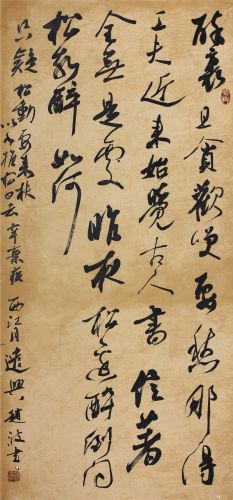 醉裏且貪歡笑要愁那得
工夫近來始覺古人書信著
全無是處昨夜松邊醉倒問
松我醉如何
只疑松動要來扶
以手推松曰去辛棄疾西江月遣興趙波書